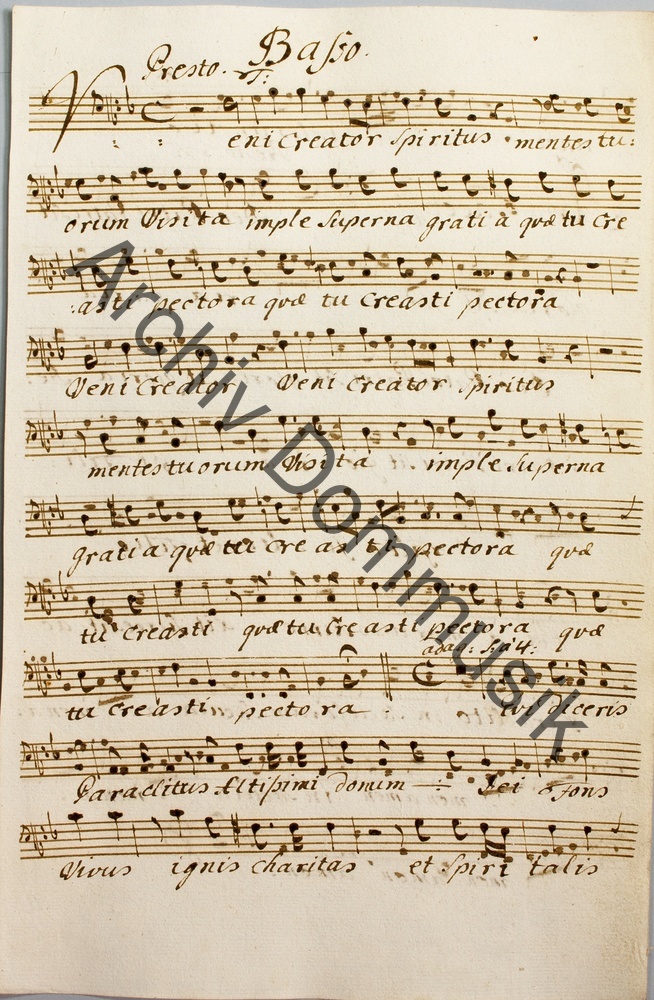 Basso.
Presto. T:
Veni Creator Spiritus mentes tu:
orum Visita imple Superna gratia quæ tu Cre
:asti pectora quæ tu Creasti pectora
Veni Creator Veni Creator Spiritus
mentes tuorum Visita imple Superna
gratia quæ tu Creasti pectora quæ
tu Creasti quæ tu Creasti pectora quæ
adag:
tu Creasti pectora qui diceris
Paraclitus Altissimi donum Dei fons
Vivus ignis Charitas et Spiri talis
Archiv Dommusik